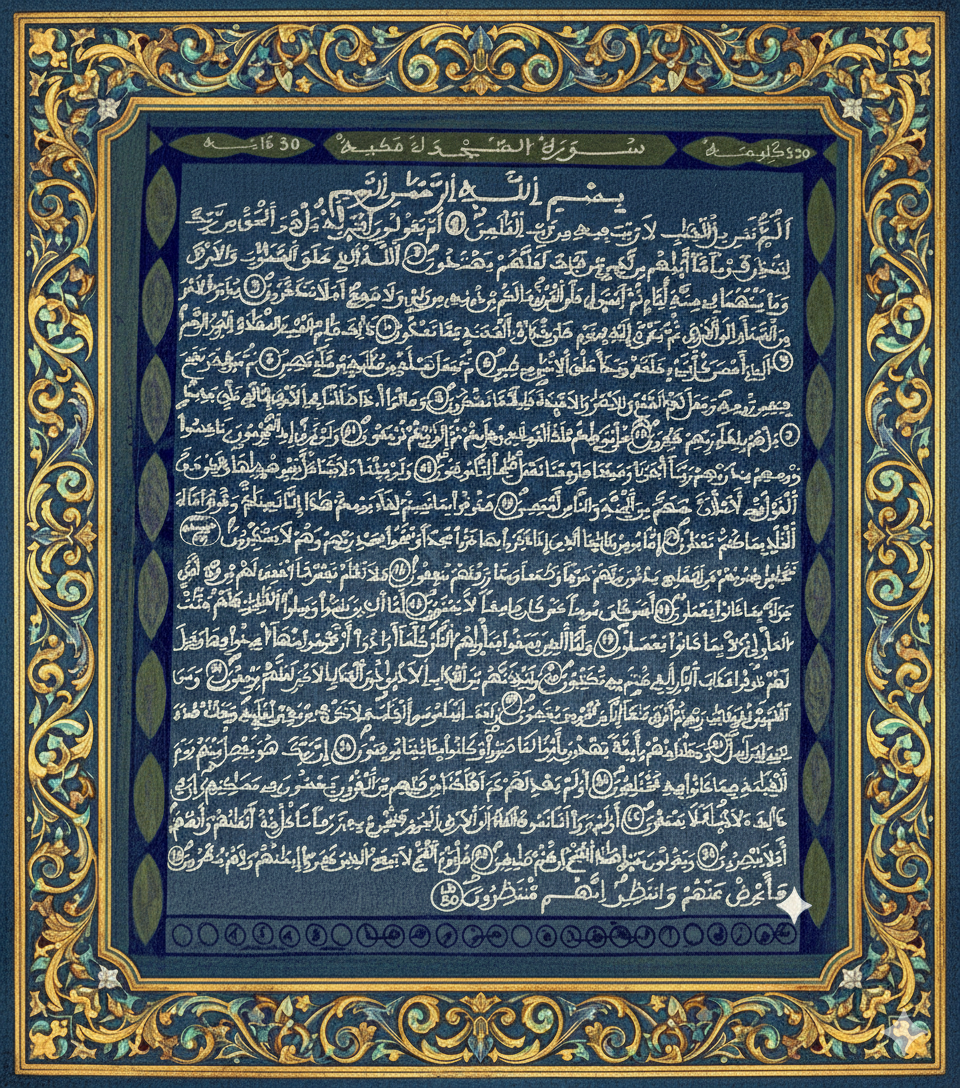 500 كلمة سورة السجدة مكية 30 ءاية
بسم الله الرحمن الرحيم
الم تنزيل الكتب لا ريب فيه من رب العلمين أم يقولون افتريه بل هو الحق من ربك
لتنذر قوما ما أتيهم من نذير من قبلك لعلهم يهتدون الله الذي خلق السموت والأرض
وما بينهما في ستة أيام ثم استوى على العرش ما لكم من دونه من ولي ولا شفيع أفلا تتذكرون يدبر الأمر
من السماء إلى الأرض ثم يعرج إليه في يوم كان مقداره ألف سنة مما تعدون ذلك علم الغيب والشهدة العزيز الرحيم
الذي أحسن كل شيء خلقه وبدأ خلق الإنسن من طين ثم جعل نسله من سللة من ماء مهين ثم سويه ونفخ
فيه من روحه وجعل لكم السمع والأبصر والأفئدة قليلا ما تشكرون وقالوا أءذا ضللنا في الأرض
بل هم بلقاء ربهم كفرون قل يتوفيكم ملك الموت الذي وكل بكم ثم إلى ربكم ترجعون ولو ترى إذ المجرمون ناكسوا
رءوسهم عند ربهم ربنا أبصرنا وسمعنا فارجعنا نعمل صلحا إنا موقنون ولو شئنا لأتينا كل نفس هديها ولكن حق
القول مني لأملأن جهنم من الجنة والناس أجمعين فذوقوا بما نسيتم لقاء يومكم هذا إنا نسينكم وذوقوا عذاب
الخلد بما كنتم تعملون إنما يؤمن بءايتنا الذين إذا ذكروا بها خروا سجدا وسبحوا بحمد ربهم وهم لا يستكبرون
تتجافى جنوبهم عن المضاجع يدعون ربهم خوفا وطمعا ومما رزقنهم ينفقون فلا تعلم نفس ما أخفي لهم من قرة أعين
جزاء بما كانوا يعملون أفمن كان مؤمنا كمن كان فاسقا لا يستون أما الذين ءامنوا وعملوا الصلحت فلهم جنت
المأوى نزلا بما كانوا يعملون وأما الذين فسقوا فمأويهم النار كلما أرادوا أن يخرجوا منها أعيدوا فيها وقيل
لهم ذوقوا عذاب النار الذي كنتم به تكذبون ولنذيقنهم من العذاب الأدنى دون العذاب الأكبر لعلهم يرجعون ومن
منتقمون ولقد ءاتينا موسى الكتب فلا تكن في مرية من لقائه وجعلنه هدى
لبني إسرءيل وجعلنا منهم أئمة يهدون بأمرنا لما صبروا وكانوا بءايتنا يوقنون إن ربك هو يفصل بينهم يوم
القيمة فيما كانوا فيه يختلفون أولم يهد لهم كم أهلكنا من قبلهم من القرون يمشون في مسكنهم إن في
ذلك لأيت أفلا يسمعون أولم يروا أنا نسوق الماء إلى الأرض الجرز فنخرج به زرعا تأكل منه أنعمهم وأنفسهم
أفلا يبصرون ويقولون متى هذا الفتح إن كنتم صدقين قل يوم الفتح لا ينفع الذين كفروا إيمنهم ولا هم ينظرون
فأعرض عنهم وانتظر إنهم منتظرون